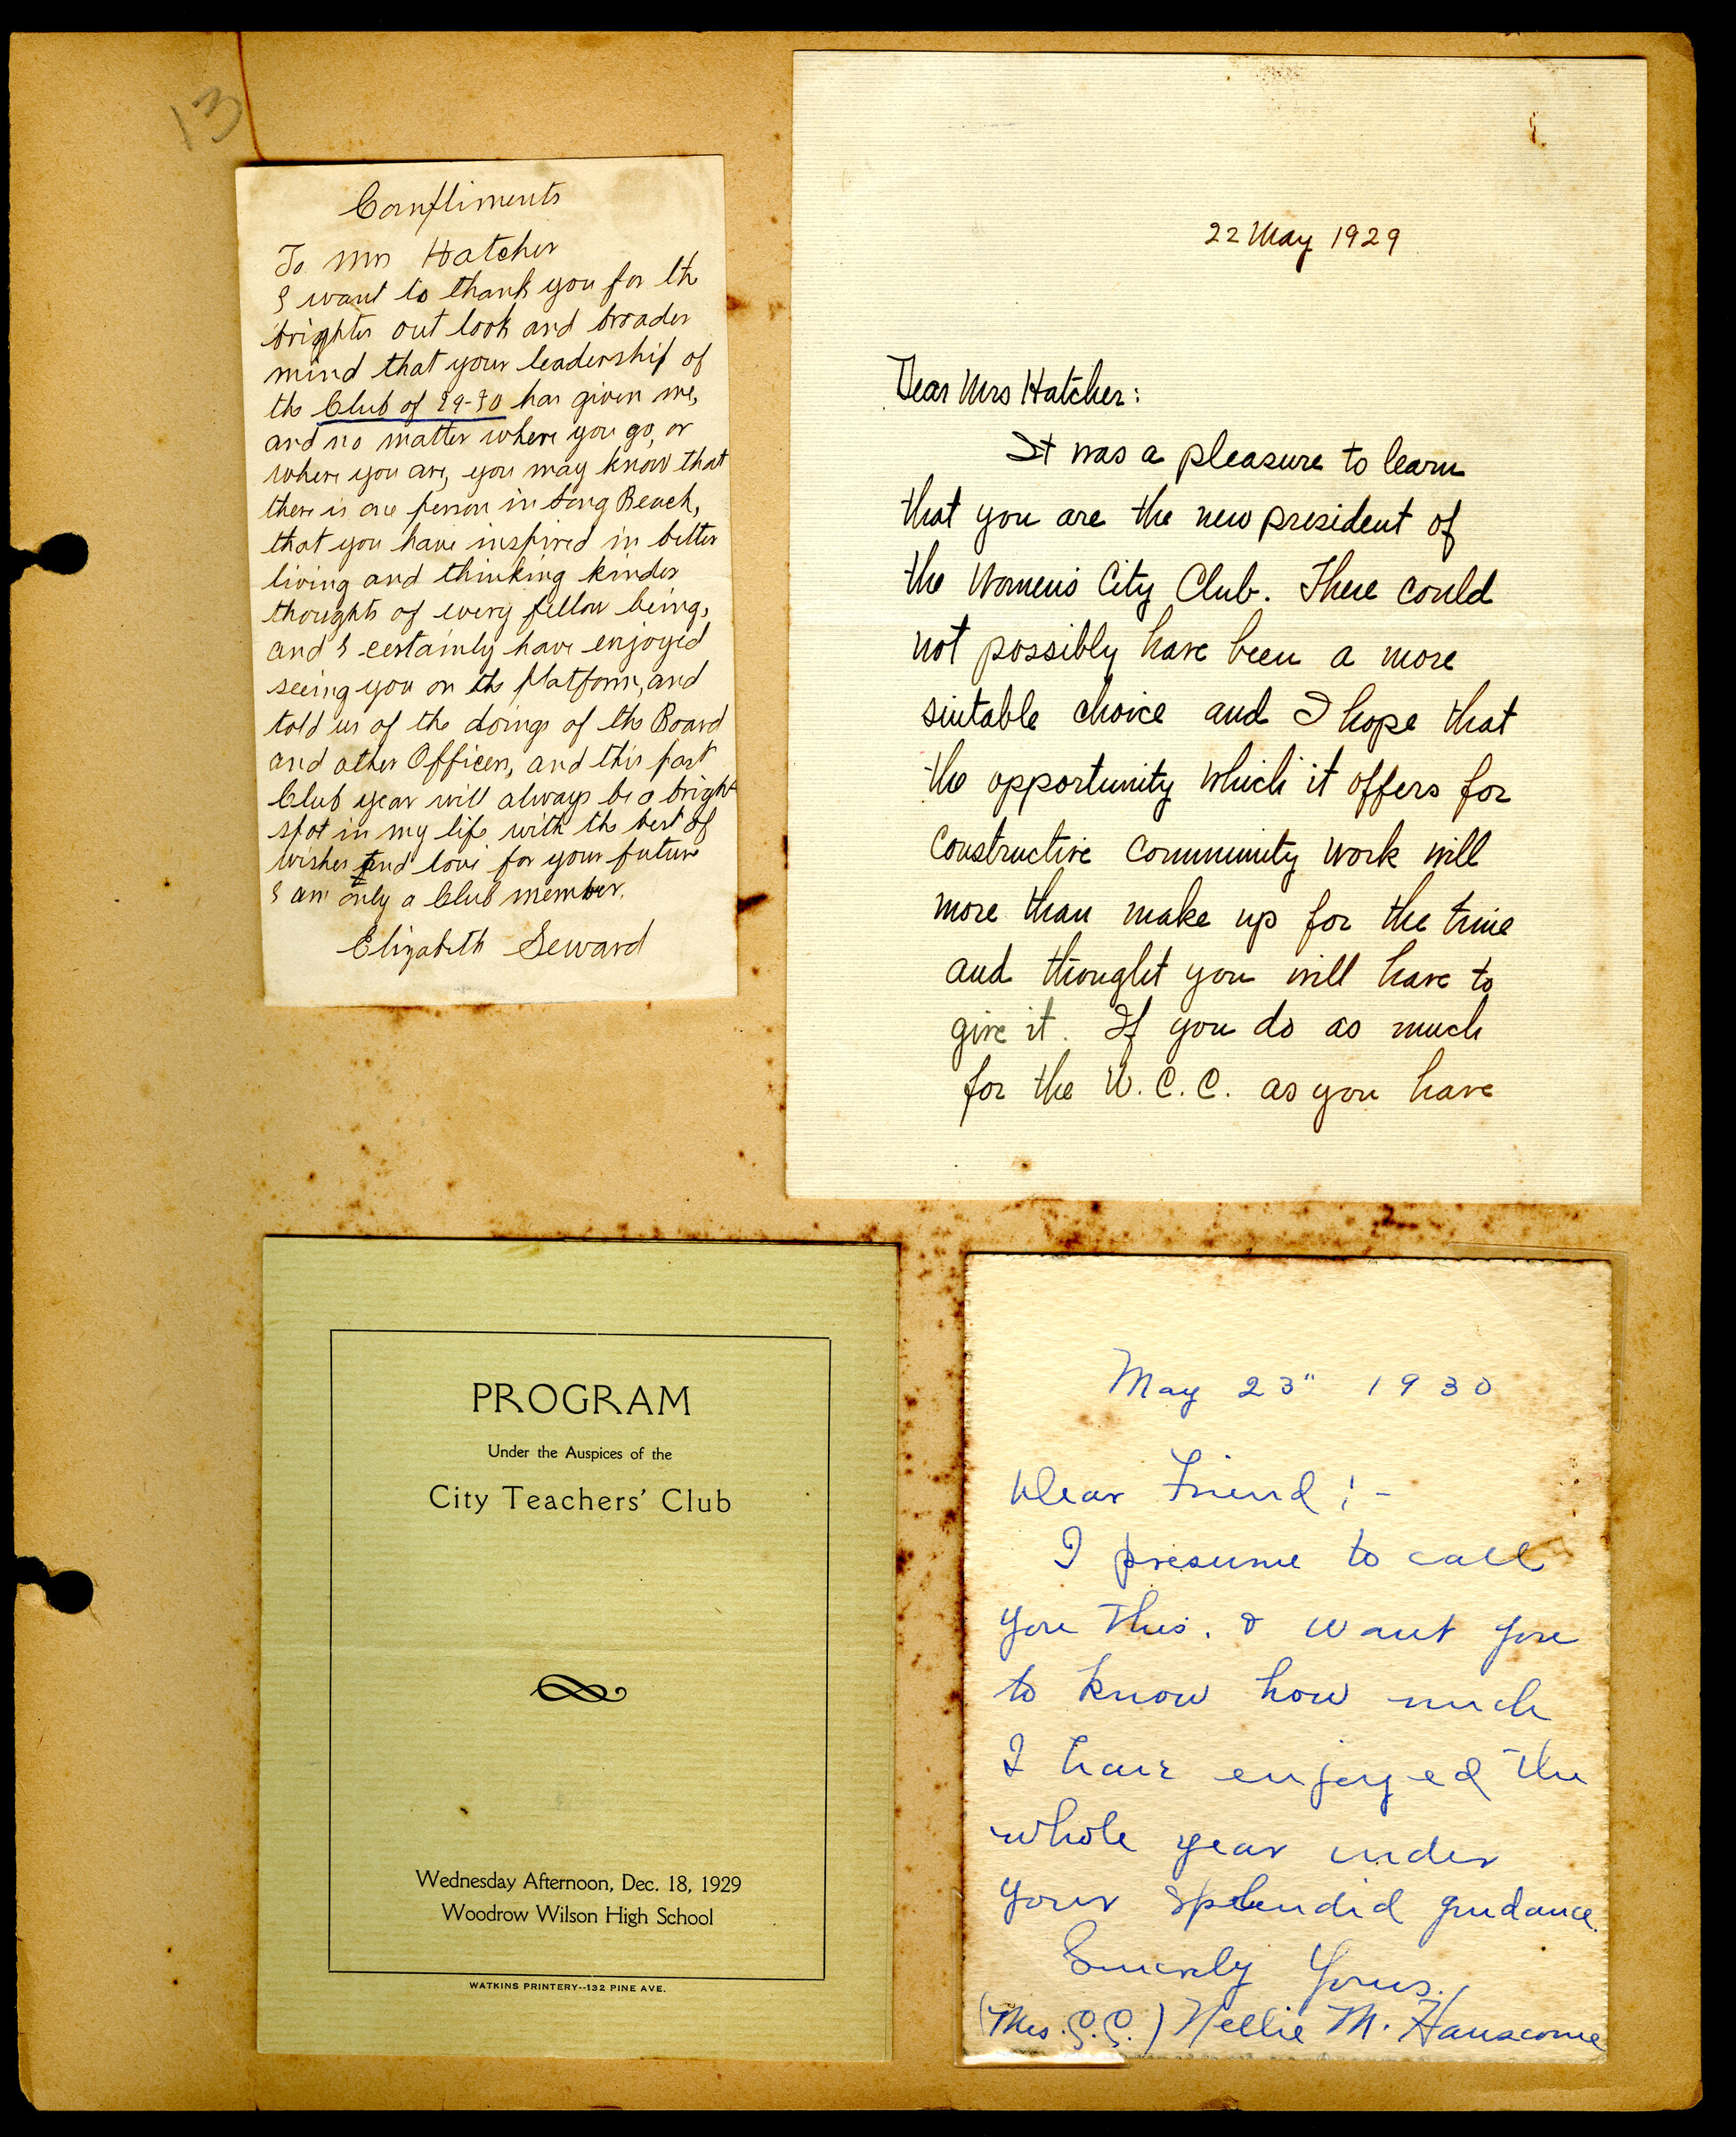 13
Compliments
To Mrs Hatcher
I want to thank you for the
brighter out look and broader
mind that your leadership of
the Club of 29-30 has given me,
and no matter where you go, or
where you are, you may know that
there is one person in Long Beach,
that you have inspired in better
living and thinking kinder
thoughts of every fellow being,
and I certainly have enjoyed
seeing you on the platform, and
told us of the doings of the Board
and other Officers, and this past
Club year will always be a bright
spot in my life with the best of
wishes and love for your future
I am only a Club member.
Elizabeth Seward
22 May 1929
Dear Mrs Hatcher:
It was a pleasure to learn
that you are the new president of
the Women's City Club. There could
not possibly have been a more
suitable choice and I hope that
the opportunity which it offers for
constructive community work will
more than make up for the time
and thought you will have to
give it. If you do as much
for the W. C. C. as you have
PROGRAM
Under the Auspices of the
City Teachers' Club
Wednesday Afternoon, Dec. 18, 1929
Woodrow Wilson High School
WATKINS PRINTERY--132 PINE AVE.
May 23" 1930
Dear Friend:-
I presume to call
you this. & want you
to know how much
I have enjoyed the
whole year under
your splendid guidance.
Sincerely Yours,
(Mrs. S.S.) Nellie M. Hanscome